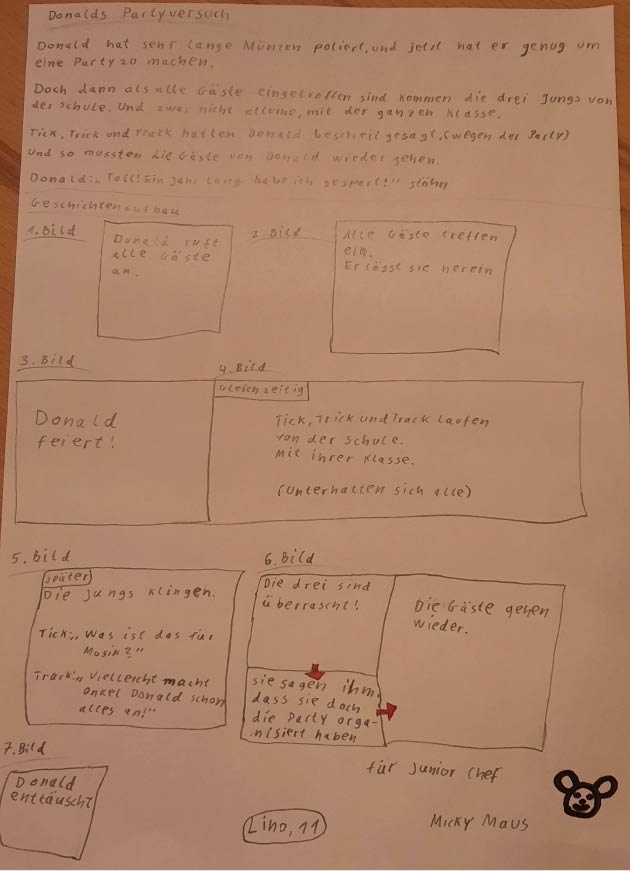 Donalds Partyversuch
Donald hat sehr lange Münzen poliert, und jetzt hat er genug um
eine Party zu machen.
Doch dann als alle Gäste eingetroffen sind kommen die drei Jungs von
der Schule. Und zwar nicht alleine, mit der ganzen Klasse.
Tick, Trick und Track hatten Donald bescheit gesagt, (wegen der Party)
und so mussten die Gäste von Donald wieder gehen.
Donald: „Toll! Ein Jahr lang habe ich gespart!" stöhn
Geschichtenaufbau
1. Bild
Donald ruft
alle Gäste
an.
2. Bild
Alle Gäste treffen
ein.
Er lässt sie herein
3. Bild
Donald
feiert!
4. Bild
Gleichzeitig
Tick, Trick und Track laufen
von der Schule.
mit ihrer Klasse.
(Unterhalten sich alle)
5. Bild
später
Die Jungs klingen.
Tick: „Was ist das für
Musik?"
Track: „Vielleicht macht
onkel Donald schon
alles an!"
6. Bild
Die drei sind
überrascht!
sie sagen ihm,
dass sie doch
die Party orga-
nisiert haben
Die Gäste gehen
wieder.
7. Bild
Donald
enttäuscht
für Junior Chef
Lino, 11
Micky Maus